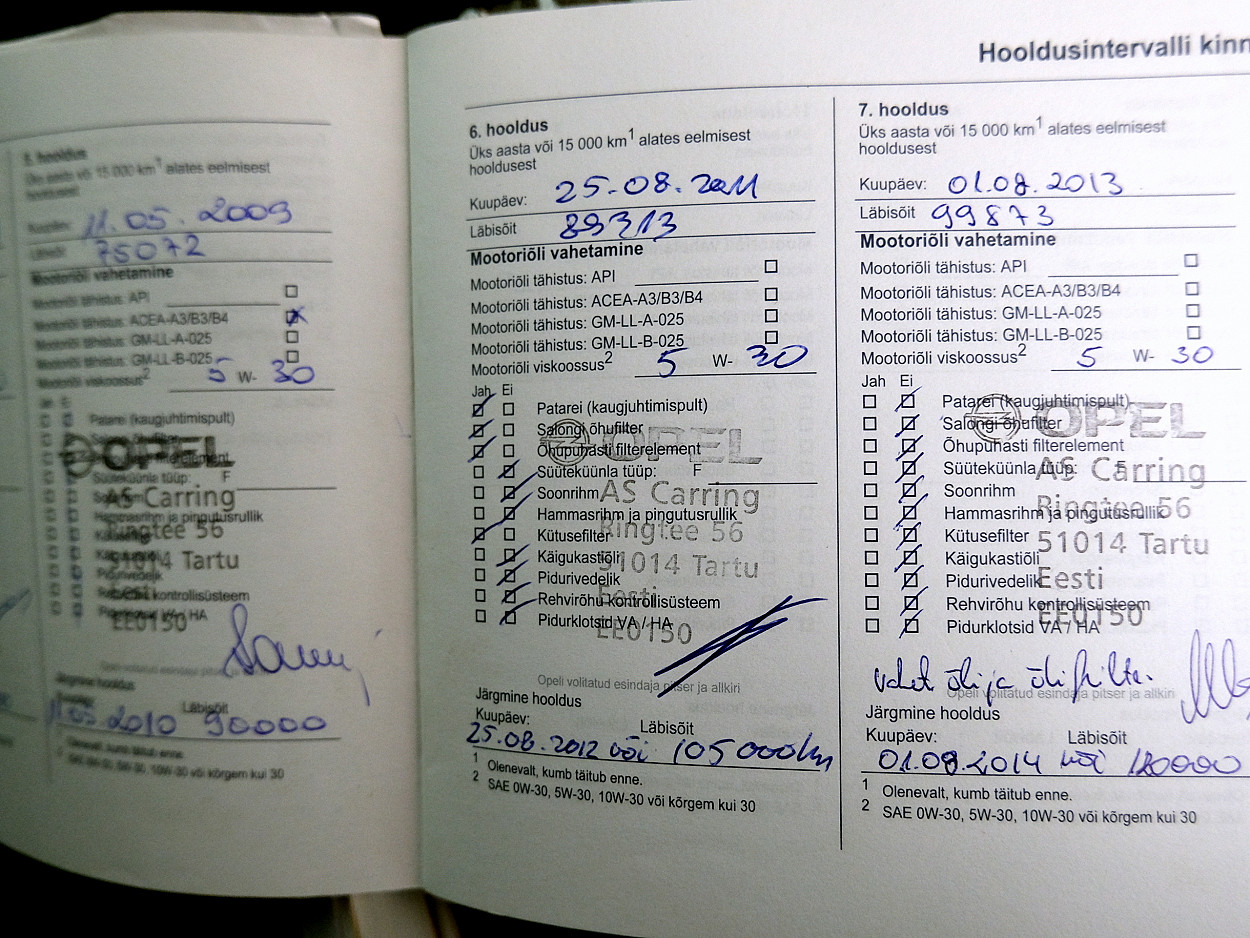 Hooldusintervalli kinn
5. hooldus
Üks aasta või 15 000 km1 alates eelmisest
hooldusest
Kuupäev: 11.05.2009
Läbisõit 75072
Mootoriõli vahetamine
Mootoriõli tähistus: API
Mootoriõli tähistus: ACEA-A3/B3/B4
Mootoriõli tähistus: GM-LL-A-025
Mootoriõli tähistus: GM-LL-B-025
Mootoriõli viskoossus2 5 W- 30
Jah Ei
Patarei (kaugjuhtimispult)
Salongi õhufilter
Õhupuhasti filterelement
Süüteküünla tüüp: F
Soonrihm
Hammasrihm ja pingutusrullik
Kütusefilter
Käigukastiõli
Pidurivedelik
Rehvirõhu kontrollisüsteem
Pidurklotsid VA / HA
OPEL
AS Carring
Ringtee 56
51014 Tartu
Eesti
EE0150
Opeli volitatud esindaja
Järgmine hooldus
Kuupäev: Läbisõit
11.05.2010 90000
1 Olenevalt, kumb täitub enne.
2 SAE 0W-30, 5W-30, 10W-30 või kõrgem kui 30
6. hooldus
Üks aasta või 15 000 km1 alates eelmisest
hooldusest
Kuupäev: 25.08.2011
Läbisõit 89313
Mootoriõli vahetamine
Mootoriõli tähistus: API
Mootoriõli tähistus: ACEA-A3/B3/B4
Mootoriõli tähistus: GM-LL-A-025
Mootoriõli tähistus: GM-LL-B-025
Mootoriõli viskoossus2 5 W- 30
Jah Ei
Patarei (kaugjuhtimispult)
Salongi õhufilter
Õhupuhasti filterelement
Süüteküünla tüüp: F
Soonrihm
Hammasrihm ja pingutusrullik
Kütusefilter
Käigukastiõli
Pidurivedelik
Rehvirõhu kontrollisüsteem
Pidurklotsid VA / HA
OPEL
AS Carring
Ringtee 56
51014 Tartu
Eesti
EE0150
Opeli volitatud esindaja pitser ja allkiri
Järgmine hooldus
Kuupäev: Läbisõit
25.08.2012 või 105000km
1 Olenevalt, kumb täitub enne.
2 SAE 0W-30, 5W-30, 10W-30 või kõrgem kui 30
7. hooldus
Üks aasta või 15 000 km1 alates eelmisest
hooldusest
Kuupäev: 01.08.2013
Läbisõit 99873
Mootoriõli vahetamine
Mootoriõli tähistus: API
Mootoriõli tähistus: ACEA-A3/B3/B4
Mootoriõli tähistus: GM-LL-A-025
Mootoriõli tähistus: GM-LL-B-025
Mootoriõli viskoossus2 5 W- 30
Jah Ei
Patarei (kaugjuhtimispult)
Salongi õhufilter
Õhupuhasti filterelement
Süüteküünla tüüp: F
Soonrihm
Hammasrihm ja pingutusrullik
Kütusefilter
Käigukastiõli
Pidurivedelik
Rehvirõhu kontrollisüsteem
Pidurklotsid VA / HA
OPEL
AS Carring
Ringtee 56
51014 Tartu
Eesti
EE0150
vahet õli ja õlifilter.
Opeli volitatud esindaja pitser ja allkiri
Järgmine hooldus
Kuupäev: Läbisõit
01.08.2014 või 120000
1 Olenevalt, kumb täitub enne.
2 SAE 0W-30, 5W-30, 10W-30 või kõrgem kui 30